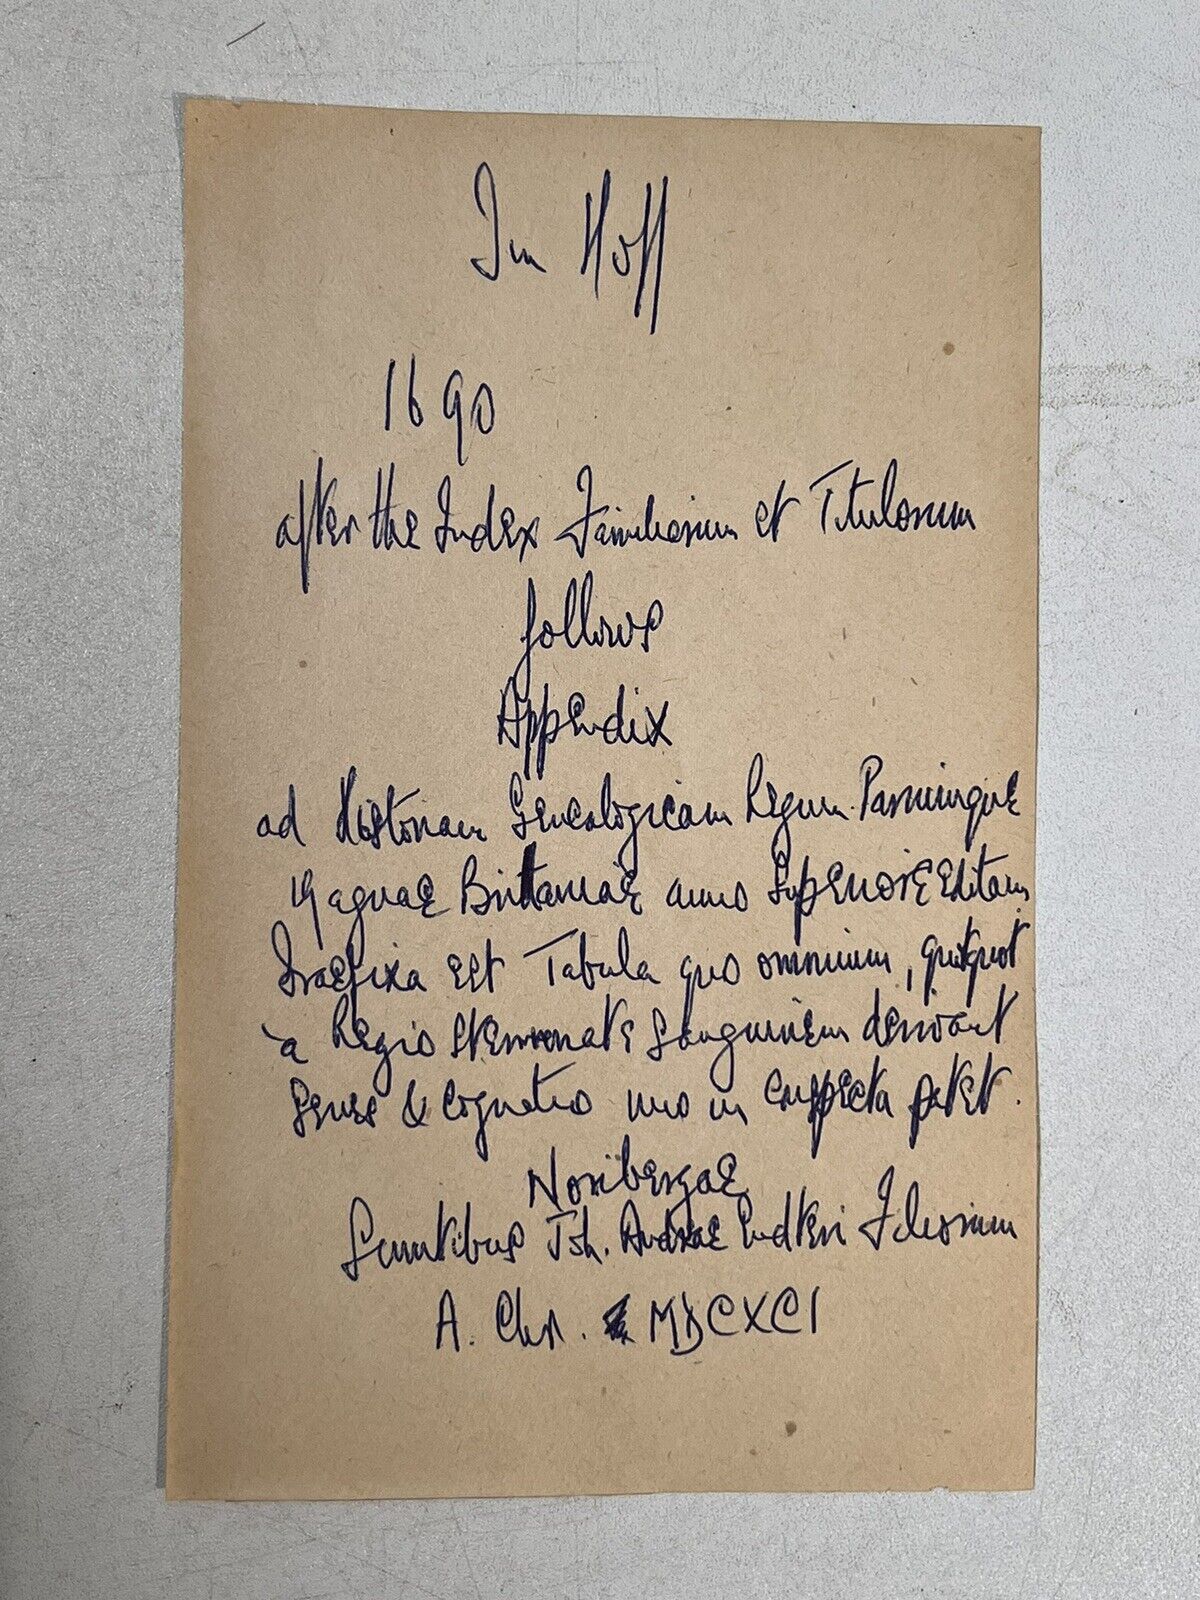 Im Hoff
1690
after the Index Familiarum et Titulorum
follows
Appendix
ad Historiam Genealogicam Regum Pariumque
Magnae Britanniae anno superiore editam
Praefixa est Tabula qua omnium, quotquot
à Regio stemmate sanguinem derivant
Genus & Cognatio uno in conspectu patet.
Noribergae
Sumtibus Joh. Andreae Endteri Filiorum
A. Chr. MDCXCI